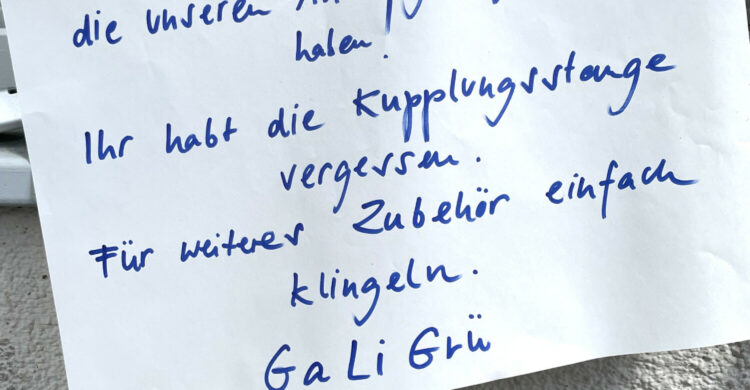 die unseren
haben!
Ihr habt die Kupplungsstange
vergessen.
Für weiteres Zubehör einfach
klingeln.
GaLiGrü